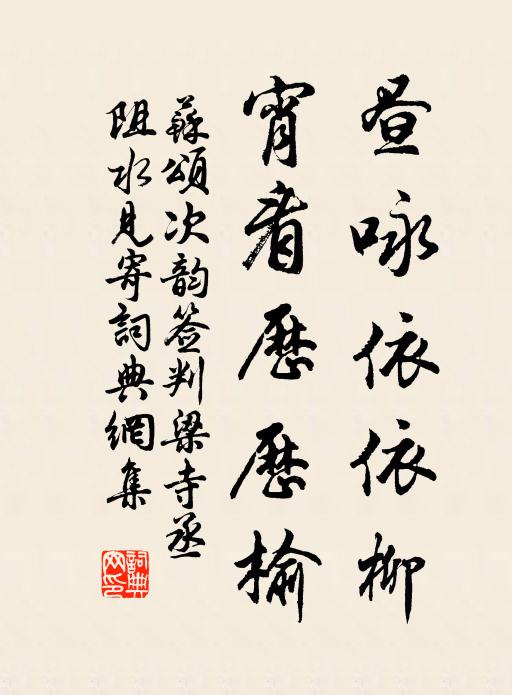 昼咏依依柳
宵看歷歷榆
蘇頌次韵签判梁寺丞
阻水見寄詞典網集
詞典网印